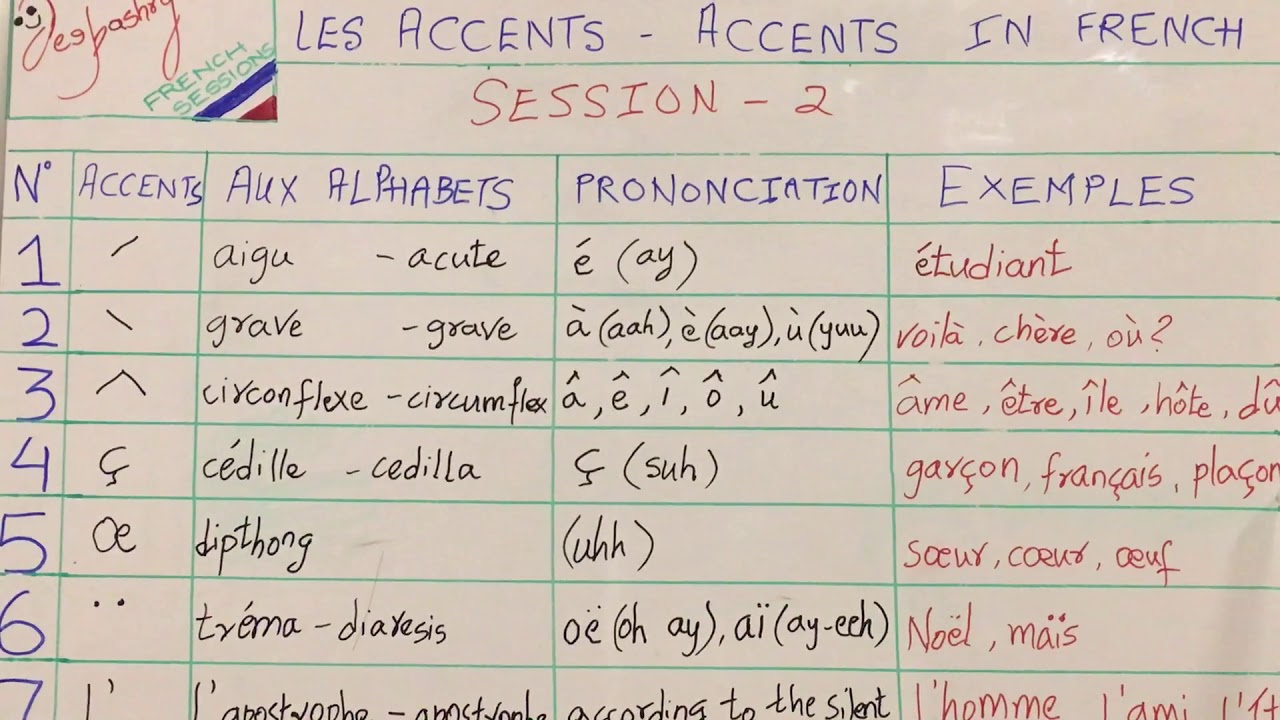 FRENCH
SESSIONS
LES ACCENTS - ACCENTS IN FRENCH
SESSION - 2
N° ACCENTS AUX ALPHABETS PRONONCIATION EXEMPLES
1 ´ aigu - acute é (ay) étudiant
2 ` grave - grave à (aah), è (aay), ù (yuu) voilà, chère, où?
3 ^ circonflexe - circumflex â, ê, î, ô, û âme, être, île, hôte, dû
4 ç cédille - cedilla ç (suh) garçon, français, plaçon
5 œ dipthong (uhh) sœur, cœur, œuf
6 ¨ tréma - diaresis oë (oh ay), aï (ay-eeh) Noël, maïs
7 l' l'apostrophe - apostrophe according to the silent l'homme l'ami